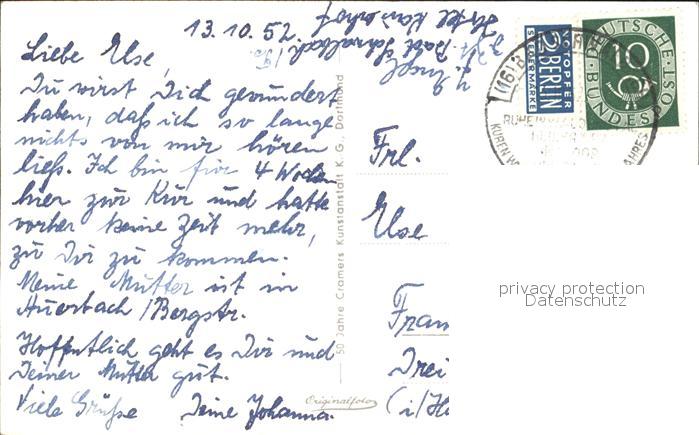 13.10.52
Liebe Else,
Du wirst Dich gewundert
haben, daß ich so lange
nichts von mir hören
ließ. Ich bin für 4 Wochen
hier zur Kur und hatte
vorher keine Zeit mehr,
zu Dir zu kommen.
Meine Mutter ist in
Auerbach / Bergstr.
Hoffentlich geht es Dir und
Deiner Mutter gut.
Viele Grüße Deine Johanna.
50 Jahre Cramers Kunstanstalt K. G., Dortmund
Originalfoto
z. Zt. Bad Schwalbach
NOTOPFER
2 BERLIN
STEUERMARKE
DEUTSCHE
BUNDESPOST
10
(16) B
Frl.
Else
Fran
Drei
(i/H
privacy protection
Datenschutz